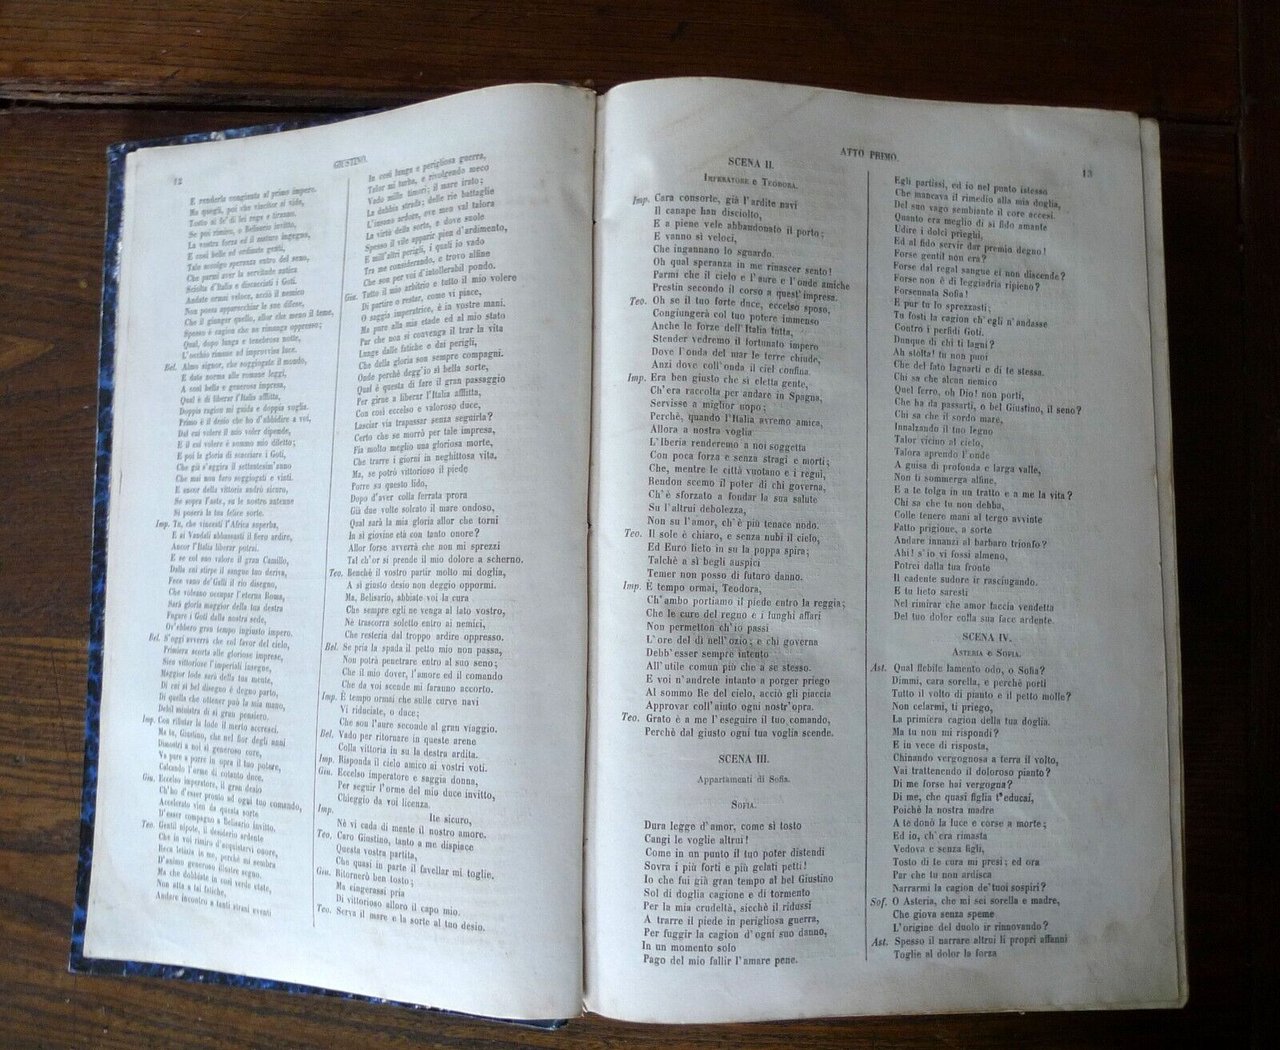 12
GIUSTINO.
E renderla congiunta al primo impero.
Ma quegli, poi che vincitor si vide,
Tosto si fe' di lei rege e tiranno.
Se poi rimiro, o Belisario invitto,
La vostra forza ed il maturo ingegno,
E così belle ed ordinate genti,
Tale accolgo speranza entro del seno,
Che parmi aver la servitude antica
Sciolta d'Italia e discacciati i Goti.
Andate ormai veloce, acciò il nemico
Non possa apparecchiar le sue difese,
Che il giunger quello, allor che meno il teme,
Spesso è cagion che su rimanga oppresso;
Qual, dopo lunga e tenebrosa notte,
L'occhio rimane ad improvvisa luce.
Bel. Almo signor, che soggiogate il mondo,
E date norma alle romane leggi,
A così bella e generosa impresa,
Qual è di liberar l'Italia afflitta,
Doppia ragion mi guida e doppia voglia.
Primo è il desio che ho d'obbidire a voi,
Dal cui volere il mio voler dipende,
E il cui volere è sommo mio diletto;
E poi la gloria di scacciare i Goti,
Che già s'aggira il settantesim'anno
Che mai non furo soggiogati e vinti.
E esser della vittoria andrò sicuro,
Se sopra l'aste, su le nostre antenne
Si poserà la tua felice sorte.
Imp. Tu, che vincesti l'Africa superba,
E ai Vandali abbassasti il fiero ardire,
Ancor l'Italia liberar potrai.
E se col suo valore il gran Camillo,
Dalla cui stirpe il sangue tuo deriva,
Fece vano de' Galli il rio disegno,
Che voleano occupar l'eterna Roma,
Sarà gloria maggior della tua destra
Fugare i Goti dalla nostra sede,
Ov'ebbero gran tempo ingiusto impero.
Bel. S'oggi avverrà che col favor del cielo,
Primiera scorta alle gloriose imprese,
Sien vittoriose l'imperiali insegne,
Maggior lode sarà della tua mente,
Di cui sì bel disegno è degno parto,
Di quella che ottener può la mia mano,
Debil ministra di sì gran pensiero.
Imp. Con rifiutar la lode il merto accresci.
Ma tu, Giustino, che nel fior degli anni
Dimostri a noi sì generoso core,
Va pure a porre in opra il tuo potere,
Calcando l'orme di cotanto duce.
Giu. Eccelso imperatore, il gran desio
Ch'ho d'esser pronto ad ogni tuo comando,
Accelerato vien da questa sorte
D'esser compagno a Belisario invitto.
Teo. Gentil nipote, il desiderio ardente
Che in voi rimiro d'acquistarvi onore,
Reca letizia in me, perchè mi sembra
D'animo generoso illustre segno.
Ma che dobbiate in così verde etate,
Non atta a tai fatiche,
Andare incontro a tanti strani eventi
In così lunga e perigliosa guerra,
Talor mi turba, e rivolgendo meco
Vado mille timori; il mare irato;
La dubbia strada; delle rie battaglie
L'insano ardore, ove men val talora
La virtù della sorte, e dove suole
Spesso il vile apparir pien d'ardimento,
E mill'altri perigli, i quali io vado
Tra me considerando, e trovo alfine
Che son per voi d'intollerabil pondo.
Giu. Tutto il mio arbitrio e tutto il mio volere
Di partire o restar, come vi piace,
O saggia imperatrice, è in vostre mani.
Ma pare alla mia etade ed al mio stato
Par che non si convenga il trar la vita
Lunge dalle fatiche e dai perigli,
Che della gloria son sempre compagni.
Onde perchè degg'io sì bella sorte,
Qual è questa di fare il gran passaggio
Per girne a liberar l'Italia afflitta,
Con così eccelso e valoroso duce,
Lasciar via trapassar senza seguirla?
Certo che se morrò per tale impresa,
Fia molto meglio una gloriosa morte,
Che trarre i giorni in neghittosa vita,
Ma, se potrò vittorioso il piede
Porre su questo lido,
Dopo d'aver colla ferrata prora
Già due volte solcato il mare ondoso,
Qual sarà la mia gloria allor che torni
In sì giovine età con tanto onore?
Allor forse avverrà che non mi sprezzi
Tal ch'or si prende il mio dolore a scherno.
Teo. Benchè il vostro partir molto mi doglia,
A sì giusto desio non deggio oppormi.
Ma, Belisario, abbiate voi la cura
Che sempre egli ne venga al lato vostro,
Nè trascorra soletto entro ai nemici,
Che resteria dal troppo ardire oppresso.
Bel. Se pria la spada il petto mio non passa,
Non potrà penetrare entro al suo seno;
Che il mio dover, l'amore ed il comando
Che da voi scende mi faranno accorto.
Imp. È tempo ormai che sulle curve navi
Vi riduciate, o duce;
Che son l'aure seconde al gran viaggio.
Bel. Vado per ritornare in queste arene
Colla vittoria in su la destra ardita.
Imp. Risponda il cielo amico ai vostri voti.
Giu. Eccelso imperatore e saggia donna,
Per seguir l'orme del mio duce invitto,
Chieggio da voi licenza.
Imp. Ite sicuro,
Nè vi cada di mente il nostro amore.
Teo. Caro Giustino, tanto a me dispiace
Questa vostra partita,
Che quasi in parte il favellar mi toglie.
Giu. Ritornerò ben tosto;
Ma cingerassi pria
Di vittorioso alloro il capo mio.
Teo. Serva il mare e la sorte al tuo desio.
ATTO PRIMO.
13
SCENA II.
IMPERATORE e TEODORA.
Imp. Cara consorte, già l'ardite navi
Il canape han disciolto,
E a piene vele abbandonato il porto;
E vanno sì veloci,
Che ingannano lo sguardo.
Oh qual speranza in me rinascer sento!
Parmi che il cielo e l'aure e l'onde amiche
Prestin secondo il corso a quest'impresa.
Teo. Oh se il tuo forte duce, eccelso sposo,
Congiungerà col tuo potere immenso
Anche le forze dell'Italia tutta,
Stender vedremo il fortunato impero
Dove l'onda del mar le terre chiude,
Anzi dove coll'onda il ciel confina.
Imp. Era ben giusto che sì eletta gente,
Ch'era raccolta per andare in Spagna,
Servisse a miglior uopo;
Perchè, quando l'Italia avremo amica,
Allora a nostra voglia
L'Iberia renderemo a noi soggetta
Con poca forza e senza stragi e morti;
Che, mentre le città vuotano e i regni,
Rendon scemo il poter di chi governa,
Ch'è sforzato a fondar la sua salute
Su l'altrui debolezza,
Non su l'amor, ch'è più tenace nodo.
Teo. Il sole è chiaro, e senza nubi il cielo,
Ed Euro lieto in su la poppa spira;
Talchè a sì begli auspici
Temer non posso di futuro danno.
Imp. È tempo ormai, Teodora,
Ch'ambo portiamo il piede entro la reggia;
Che le cure del regno e i lunghi affari
Non permetton ch'io passi
L'ore del dì nell'ozio; e chi governa
Debb'esser sempre intento
All'utile comun più che a se stesso.
E voi n'andrete intanto a porger priego
Al sommo Re del cielo, acciò gli piaccia
Approvar coll'aiuto ogni nostr'opra.
Teo. Grato è a me l'eseguire il tuo comando,
Perchè dal giusto ogni tua voglia scende.
SCENA III.
Appartamenti di Sofia.
SOFIA.
Dura legge d'amor, come sì tosto
Cangi le voglie altrui!
Come in un punto il tuo poter distendi
Sovra i più forti e più gelati petti!
Io che fui già gran tempo al bel Giustino
Sol di doglia cagione e di tormento
Per la mia crudeltà, sicchè il ridussi
A trarre il piede in perigliosa guerra,
Per fuggir la cagion d'ogni suo danno,
In un momento solo
Pago del mio fallir l'amare pene.
Egli partissi, ed io nel punto istesso
Che mancava il rimedio alla mia doglia,
Del suo vago sembiante il core accesi.
Quanto era meglio di sì fido amante
Udire i dolci prieghi,
Ed al fido servir dar premio degno!
Forse gentil non era?
Forse dal regal sangue ei non discende?
Forse non è di leggiadria ripieno?
Forsennata Sofia!
E pur tu lo sprezzasti;
Tu fosti la cagion ch'egli n'andasse
Contro i perfidi Goti.
Dunque di chi ti lagni?
Ah stolta! tu non puoi
Che del fato lagnarti e di te stessa.
Chi sa che alcun nemico
Quel ferro, oh Dio! non porti,
Che ha da passarti, o bel Giustino, il seno?
Chi sa che il sordo mare,
Innalzando il tuo legno
Talor vicino al cielo,
Talora aprendo l'onde
A guisa di profonda e larga valle,
Non ti sommerga alfine,
E a te tolga in un tratto e a me la vita?
Chi sa che tu non debba,
Colle tenere mani al tergo avvinte
Fatto prigione, a sorte
Andare innanzi al barbaro trionfo?
Ahi! s'io vi fossi almeno,
Potrei dalla tua fronte
Il cadente sudore ir rasciugando.
E tu lieto saresti
Nel rimirar che amor faccia vendetta
Del tuo dolor colla sua face ardente.
SCENA IV.
ASTERIA e SOFIA.
Ast. Qual flebile lamento odo, o Sofia?
Dimmi, cara sorella, e perchè porti
Tutto il volto di pianto e il petto molle?
Non celarmi, ti priego,
La primiera cagion della tua doglia.
Ma tu non mi rispondi?
E in vece di risposta,
Chinando vergognosa a terra il volto,
Vai trattenendo il doloroso pianto?
Di me forse hai vergogna?
Di me, che quasi figlia t'educai,
Poichè la nostra madre
A te donò la luce e corse a morte;
Ed io, ch'era rimasta
Vedova e senza figli,
Tosto di te cura mi presi; ed ora
Par che tu non ardisca
Narrarmi la cagion de'tuoi sospiri?
Sof. O Asteria, che mi sei sorella e madre,
Che giova senza speme
L'origine del duolo ir rinnovando?
Ast. Spesso il narrare altrui li propri affanni
Toglie al dolor la forza